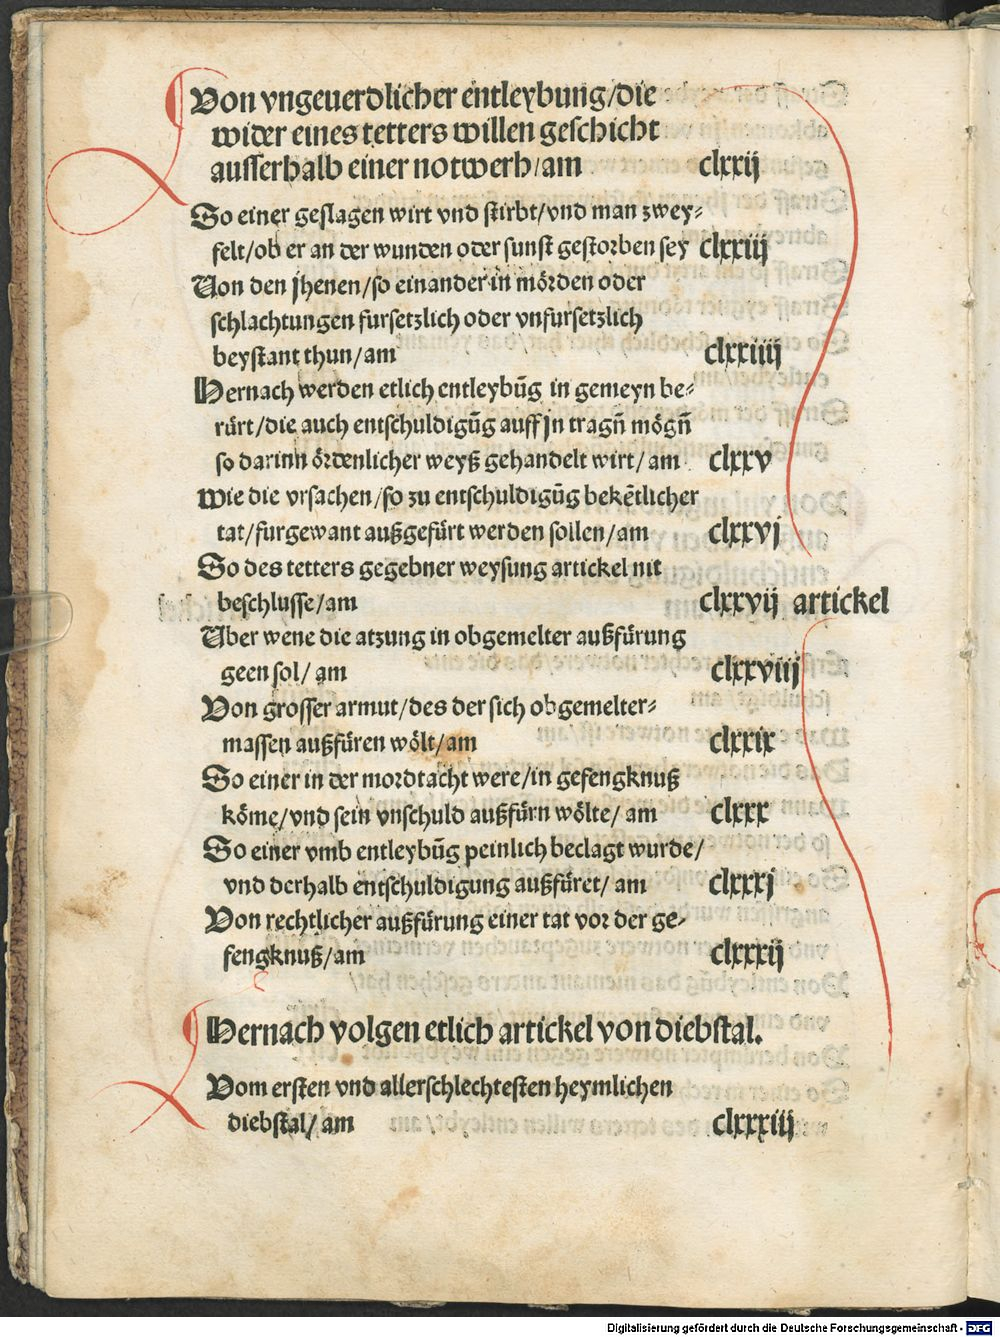 Von vngeuerdlicher entleybung/die
wider eines tetters willen geschicht
ausserhalb einer notwerh/am clxxij
So einer geslagen wirt vnd stirbt/vnd man zwey⸗
felt/ob er an der wunden oder sunst gestorben sey clxxiij
Uon den jhenen/so einander in mörden oder
schlachtungen fursetzlich oder vnfursetzlich
beystant thun/am clxxiiij
Hernach werden etlich entleybūg in gemeyn be⸗
rürt/die auch entschuldigūg auff jn tragn̄ mögn̄
so darinn ördenlicher weyß gehandelt wirt/am clxxv
Wie die vrsachen/so zu entschuldigūg bekētlicher
tat/furgewant außgefürt werden sollen/am clxxvj
So des tetters gegebner weysung artickel nit
beschlusse/am clxxvij artickel
Uber wene die atzung in obgemelter außfürung
geen sol/am clxxviij
Von grosser armut/des der sich obgemelter⸗
massen außfüren wölt/am clxxix
So einer in der mordtacht were/in gefengknuß
köme/vnd sein vnschuld außfürn wölte/am clxxx
So einer vmb entleybūg peinlich beclagt wurde/
vnd derhalb entschuldigung außfüret/am clxxxj
Von rechtlicher außfürung einer tat vor der ge⸗
fengknuß/am clxxxij
Hernach volgen etlich artickel von diebstal.
Vom ersten vnd allerschlechtesten heymlichen
diebstal/am clxxxiij
Digitalisierung gefördert durch die Deutsche Forschungsgemeinschaft - DFG